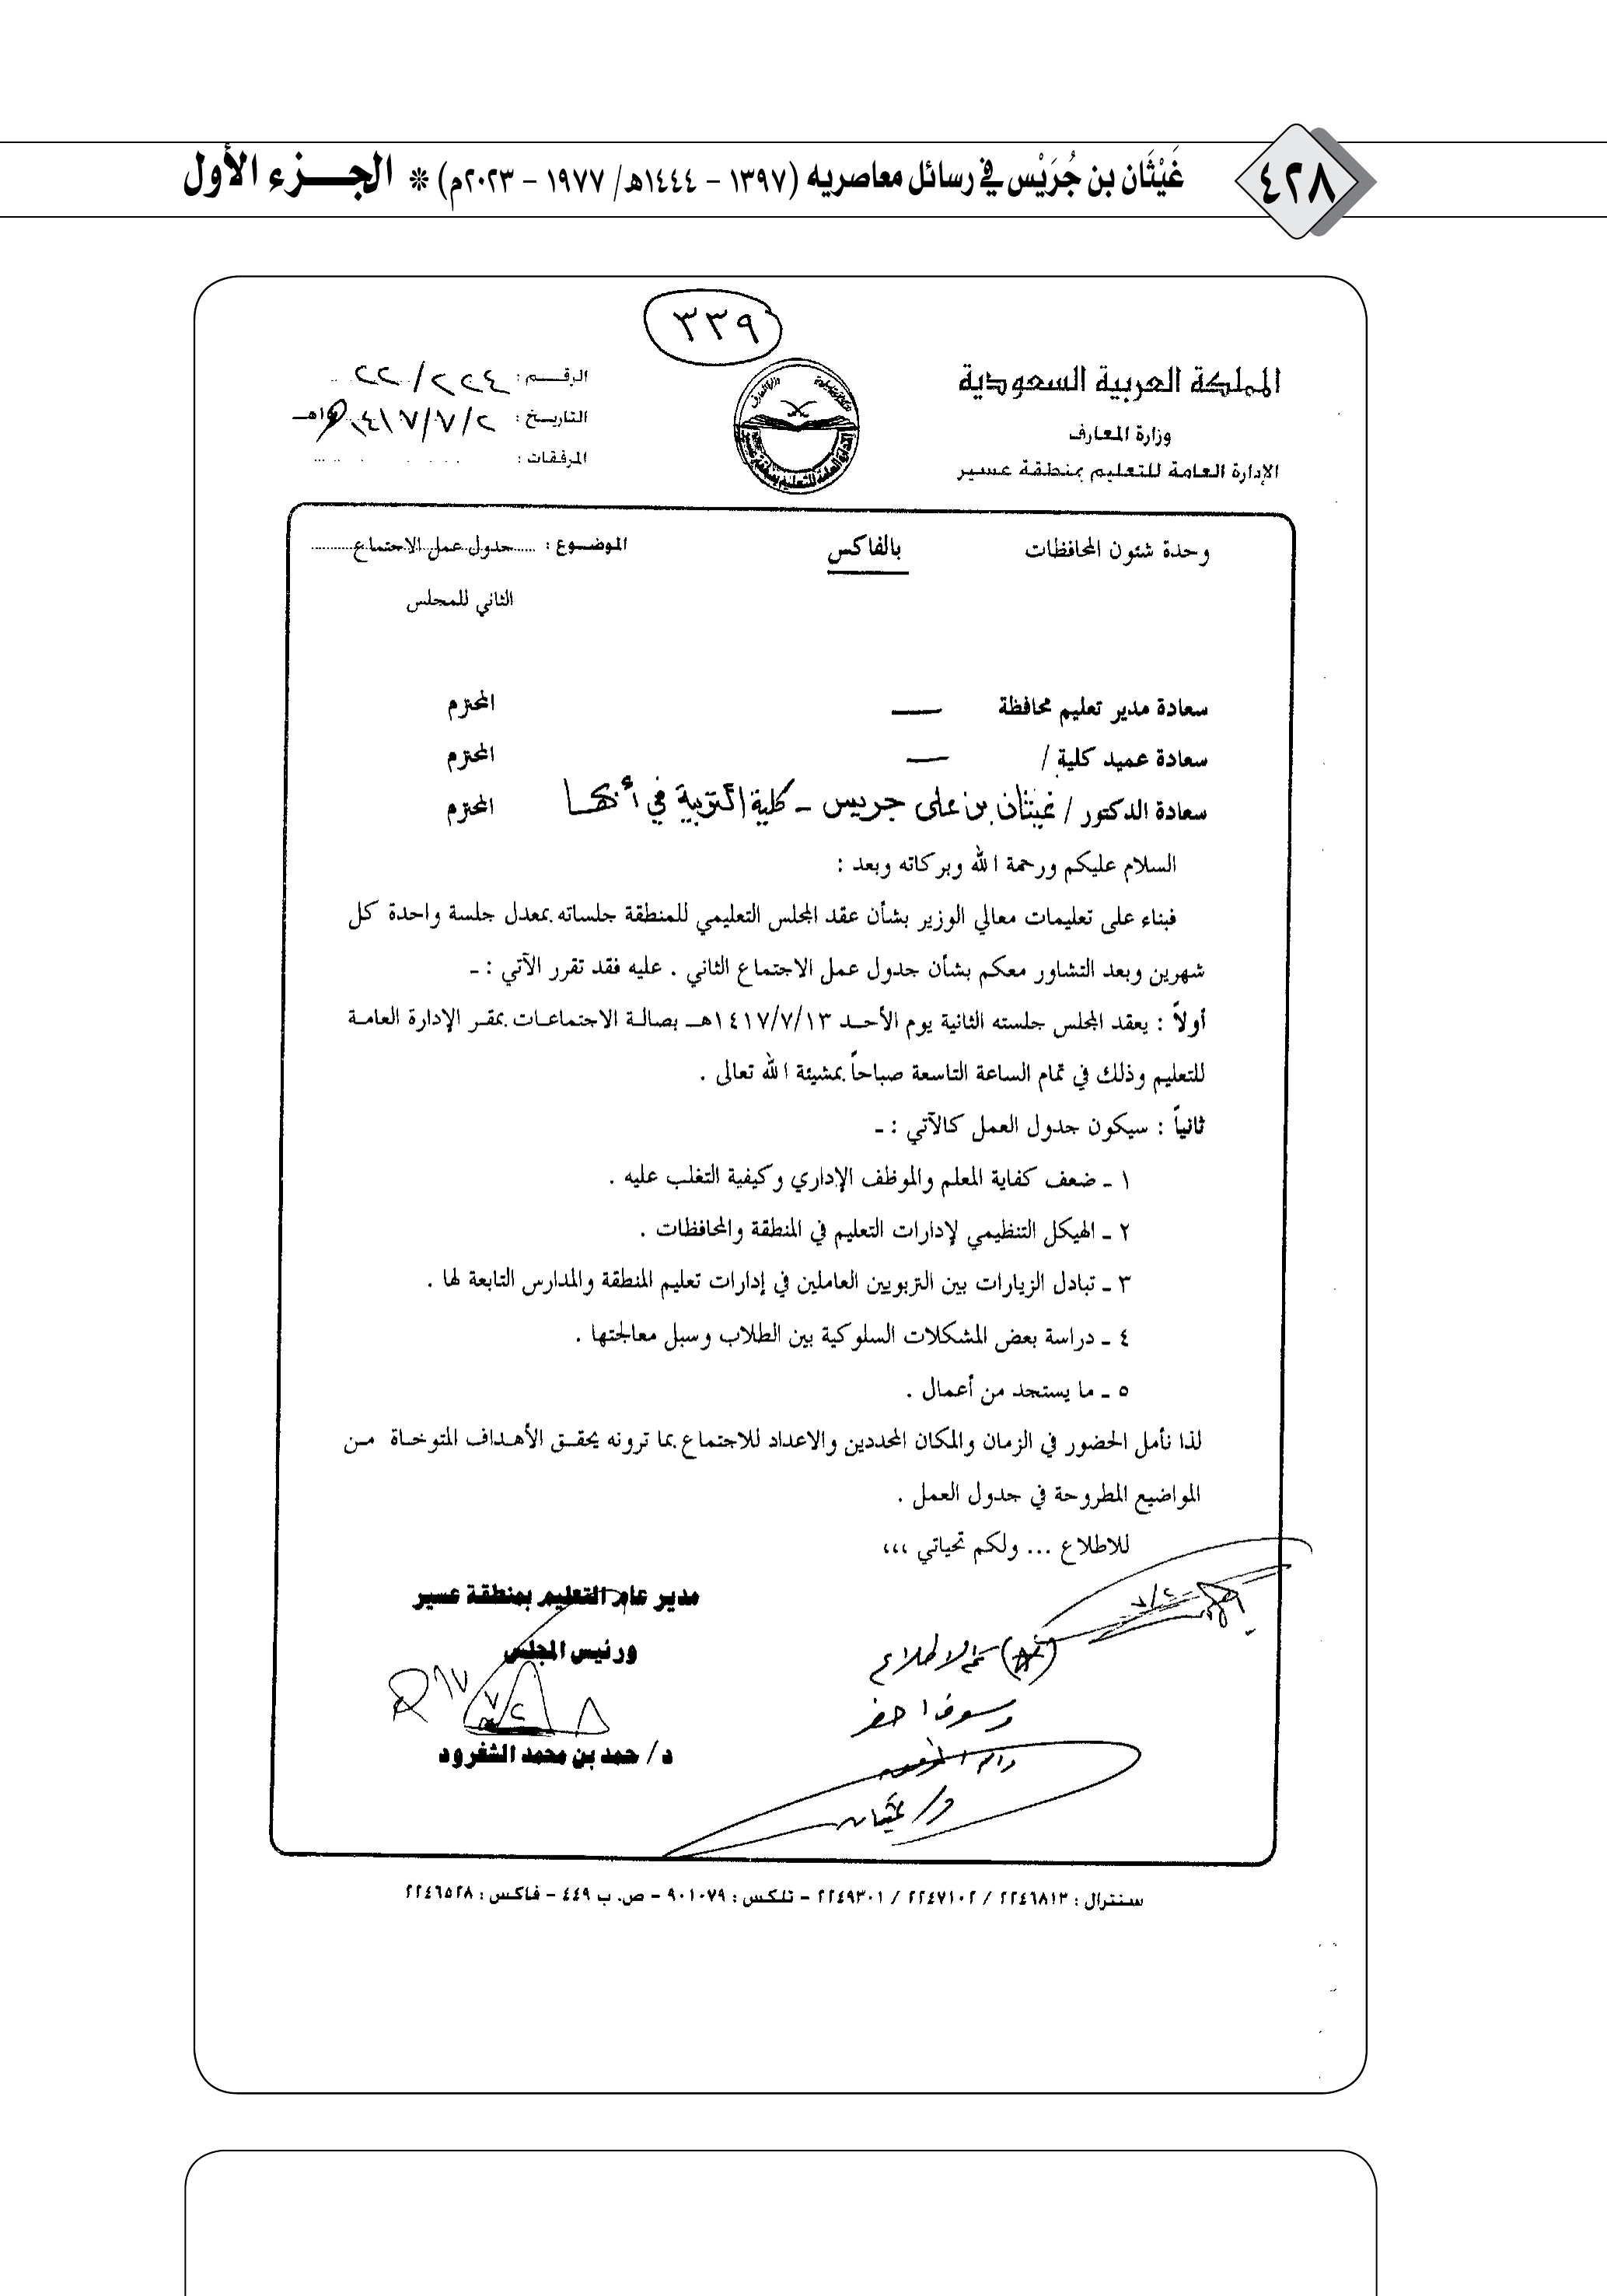 ٤٢٨
غَيْثَان بن جُرَيْس في رسائل معاصريه (١٣٩٧ - ١٤٤٤هـ/ ١٩٧٧ - ٢٠٢٣م) * الجـــزء الأول
٣٣٩
المملكة العربية السعودية
وزارة المعارف
الإدارة العامة للتعليم بمنطقة عسير
الرقـــم :
التاريـخ : ٢/٧/١٤١٧هـ
المرفقات :
وحدة شئون المحافظات
بالفاكس
الموضـوع : جدول عمل الاجتماع
الثاني للمجلس
سعادة مدير تعليم محافظة — المحترم
سعادة عميد كلية / — المحترم
سعادة الدكتور / غيثان بن على جريس - كلية التربية في أبها المحترم
السلام عليكم ورحمة الله وبركاته وبعد :
فبناء على تعليمات معالي الوزير بشأن عقد المجلس التعليمي للمنطقة جلساته بمعدل جلسة واحدة كل
شهرين وبعد التشاور معكم بشأن جدول عمل الاجتماع الثاني . عليه فقد تقرر الآتي : ـ
أولاً : يعقد المجلس جلسته الثانية يوم الأحـد ١٤١٧/٧/١٣هـ بصالـة الاجتماعـات بمقـر الإدارة العامـة
للتعليم وذلك في تمام الساعة التاسعة صباحاً بمشيئة الله تعالى .
ثانياً : سيكون جدول العمل كالآتي : ـ
١ ـ ضعف كفاية المعلم والموظف الإداري وكيفية التغلب عليه .
٢ ـ الهيكل التنظيمي لإدارات التعليم في المنطقة والمحافظات .
٣ ـ تبادل الزيارات بين التربويين العاملين في إدارات تعليم المنطقة والمدارس التابعة لها .
٤ ـ دراسة بعض المشكلات السلوكية بين الطلاب وسبل معالجتها .
٥ ـ ما يستجد من أعمال .
لذا نأمل الحضور في الزمان والمكان المحددين والاعداد للاجتماع بما ترونه يحقـق الأهـداف المتوخـاة مـن
المواضيع المطروحة في جدول العمل .
للاطلاع ... ولكم تحياتي ،،،
مدير عام التعليم بمنطقة عسير
ورئيس المجلس
د/ حمد بن محمد الشغرود
تم الاطلاع
وسوف احضر
د/ غيثان
سنترال : ٢٢٤٦٨١٣ / ٢٢٤٧١٠٢ / ٢٢٤٩٣٠١ - تلكس : ٩٠١٠٧٩ - ص. ب ٤٤٩ - فاكس : ٢٢٤٦٥٢٨